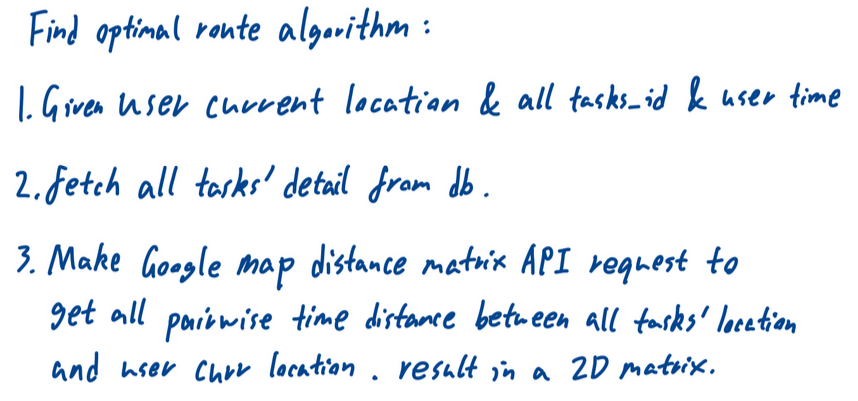 Find optimal route algorithm :
1. Given user current location & all tasks_id & user time
2. fetch all tasks' detail from db.
3. Make Google map distance matrix API request to
get all pairwise time distance between all tasks' location
and user curr location . result in a 2D matrix.